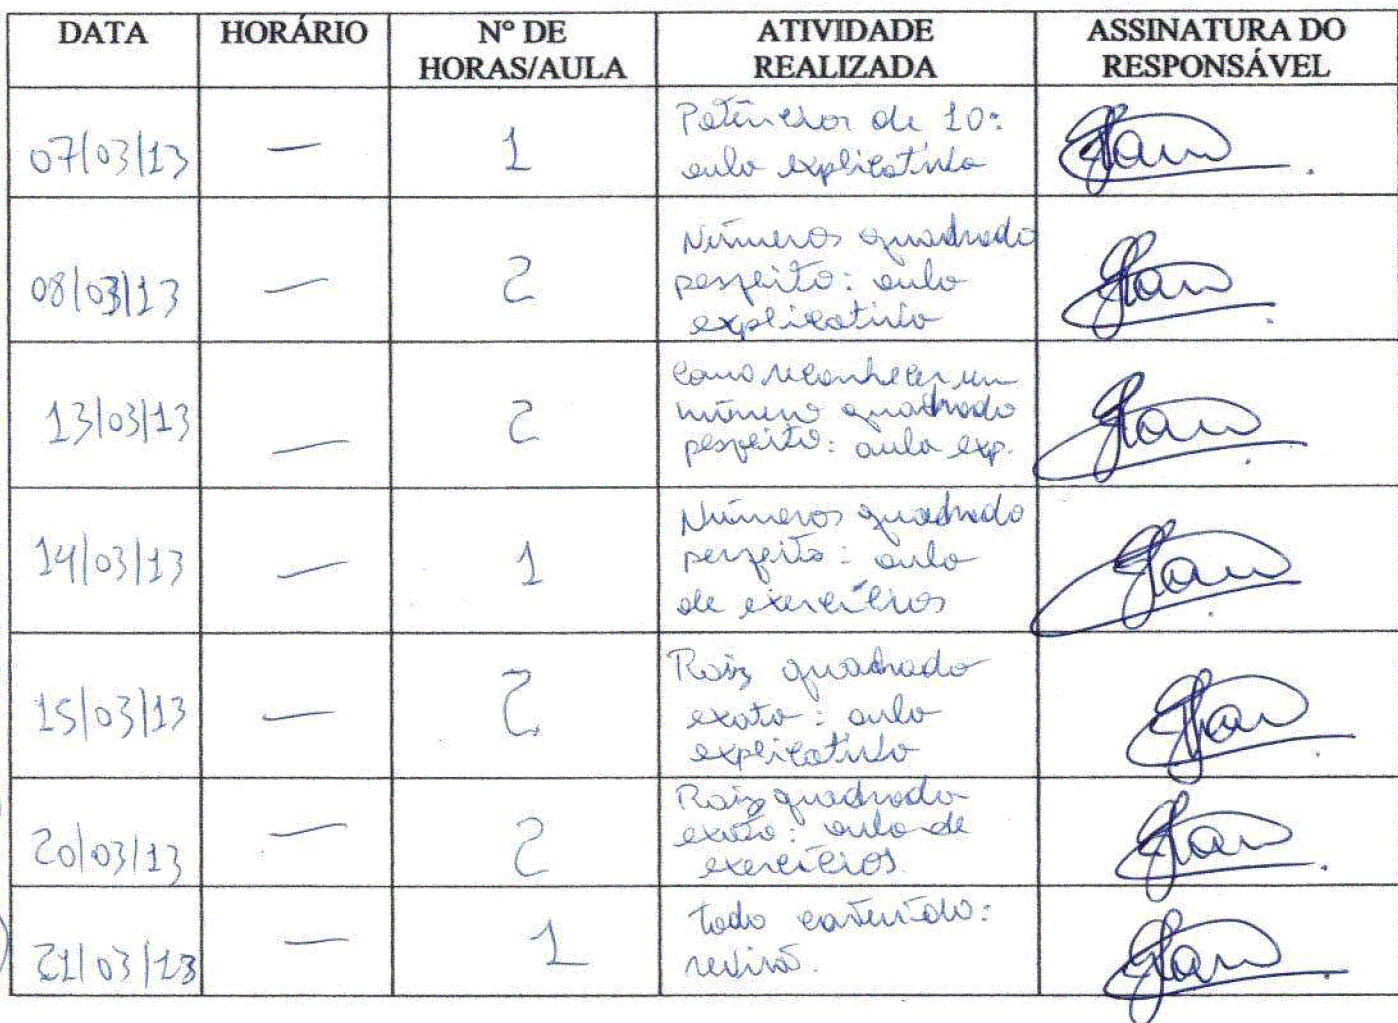 DATA HORÁRIO Nº DE HORAS/AULA ATIVIDADE REALIZADA ASSINATURA DO RESPONSÁVEL
07/03/13 — 1 Potências de 10:
aula explicativa
08/03/13 — 2 Números quadrado
perfeito: aula
explicativa
13/03/13 — 2 Como reconhecer um
número quadrado
perfeito: aula exp.
14/03/13 — 1 Números quadrado
perfeito: aula
de exercícios
15/03/13 — 2 Raiz quadrada
exata: aula
explicativa
20/03/13 — 2 Raiz quadrada
exata: aula de
exercícios.
21/03/13 — 1 Todo conteúdo:
revisão.